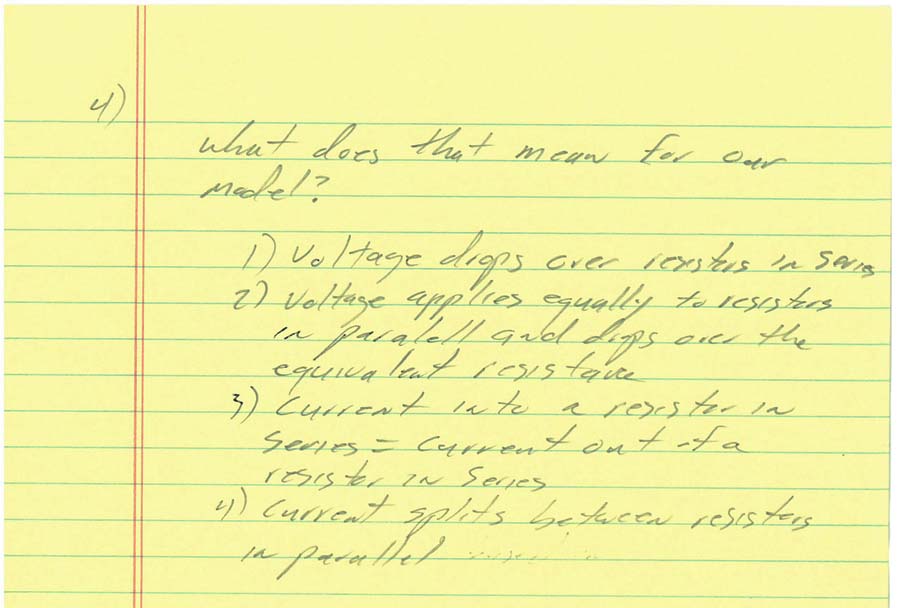 4)
What does that mean for our
Model?
1) Voltage drops over resistors in Series
2) Voltage applies equally to resistors
in paralell and drops over the
equivalent resistance
3) Current into a resistor in
Series = Current out of a
resistor in Series
4) Current splits between resistors
in parallel